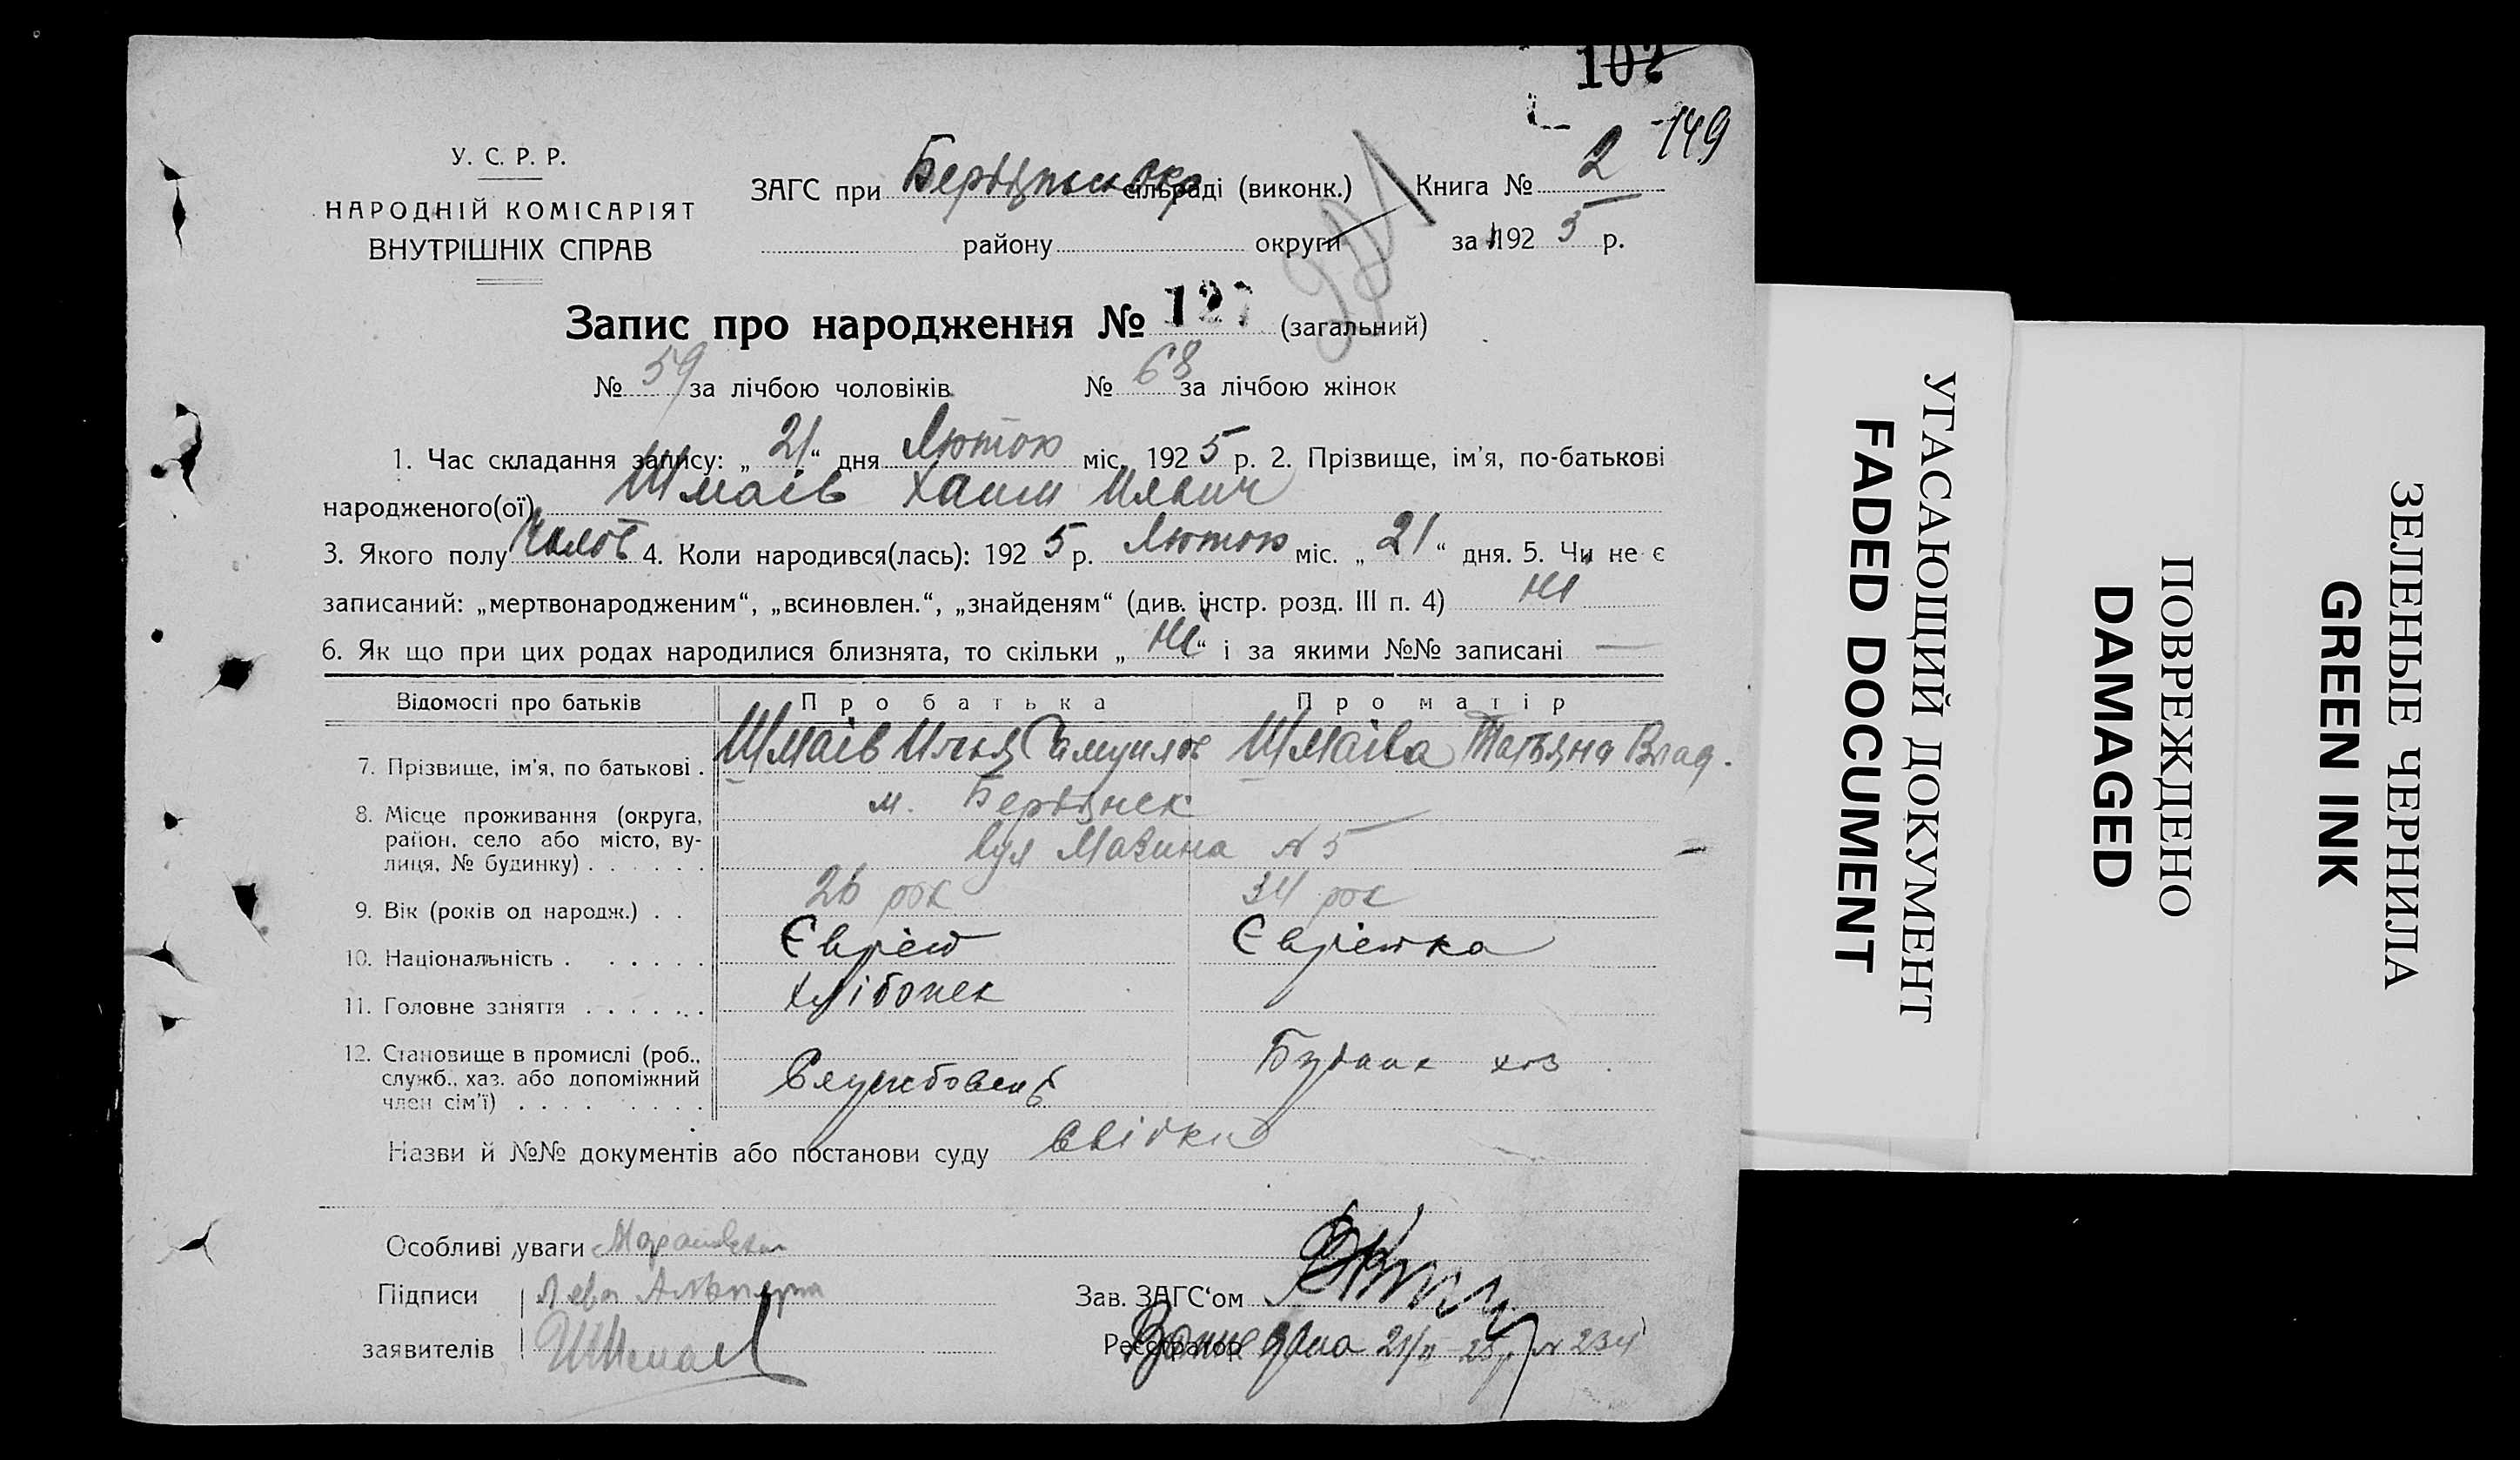 149
У. С. Р. Р.
НАРОДНІЙ КОМІСАРІЯТ
ВНУТРІШНІХ СПРАВ
ЗАГС при сільраді (виконк.) Книга № 2
району округи за 1925 р.
Запис про народження № 127 (загальний)
№ 59 за лічбою чоловіків № 68 за лічбою жінок
1. Час складання запису: „ 21 “ дня Лютого міс. 1925 р. 2. Прізвище, ім'я, по-батькові
народженого(ої) Шмаів Хаим Ильич
3. Якого полу Чолов 4. Коли народився(лась): 1925 р. Лютого міс. „ 21 “ дня. 5. Чи не є
записаний: „мертвонародженим“, „всиновлен.“, „знайденям“ (див. інстр. розд. III п. 4) Ні
6. Як що при цих родах народилися близнята, то скільки „ Ні “ і за якими №№ записані —
Відомості про батьків Про батька Про матір
7. Прізвище, ім'я, по батькові . Шмаів Илья Самуилов Шмаіва Татьяна Влад.
8. Місце проживання (округа, район, село або місто, вулиця, № будинку) . . . . . . м. Бердичев
вул № 5
9. Вік (років од народж.) . . 26 рок 34 рок
10. Національність . . . . . . Єврей Єврейка
11. Головне заняття . . . . . . Хлібопек
12. Становище в промислі (роб., служб., хаз. або допоміжний член сім'ї) . . . . . . . . Службовець хоз
Назви й №№ документів або постанови суду
Особливі уваги
Підписи
заявителів Шмаів
Зав. ЗАГС'ом
Реєстратор 21/II-25 № 234
УГАСАЮЩИЙ ДОКУМЕНТ
FADED DOCUMENT
ПОВРЕЖДЕНО
DAMAGED
ЗЕЛЕНЫЕ ЧЕРНИЛА
GREEN INK